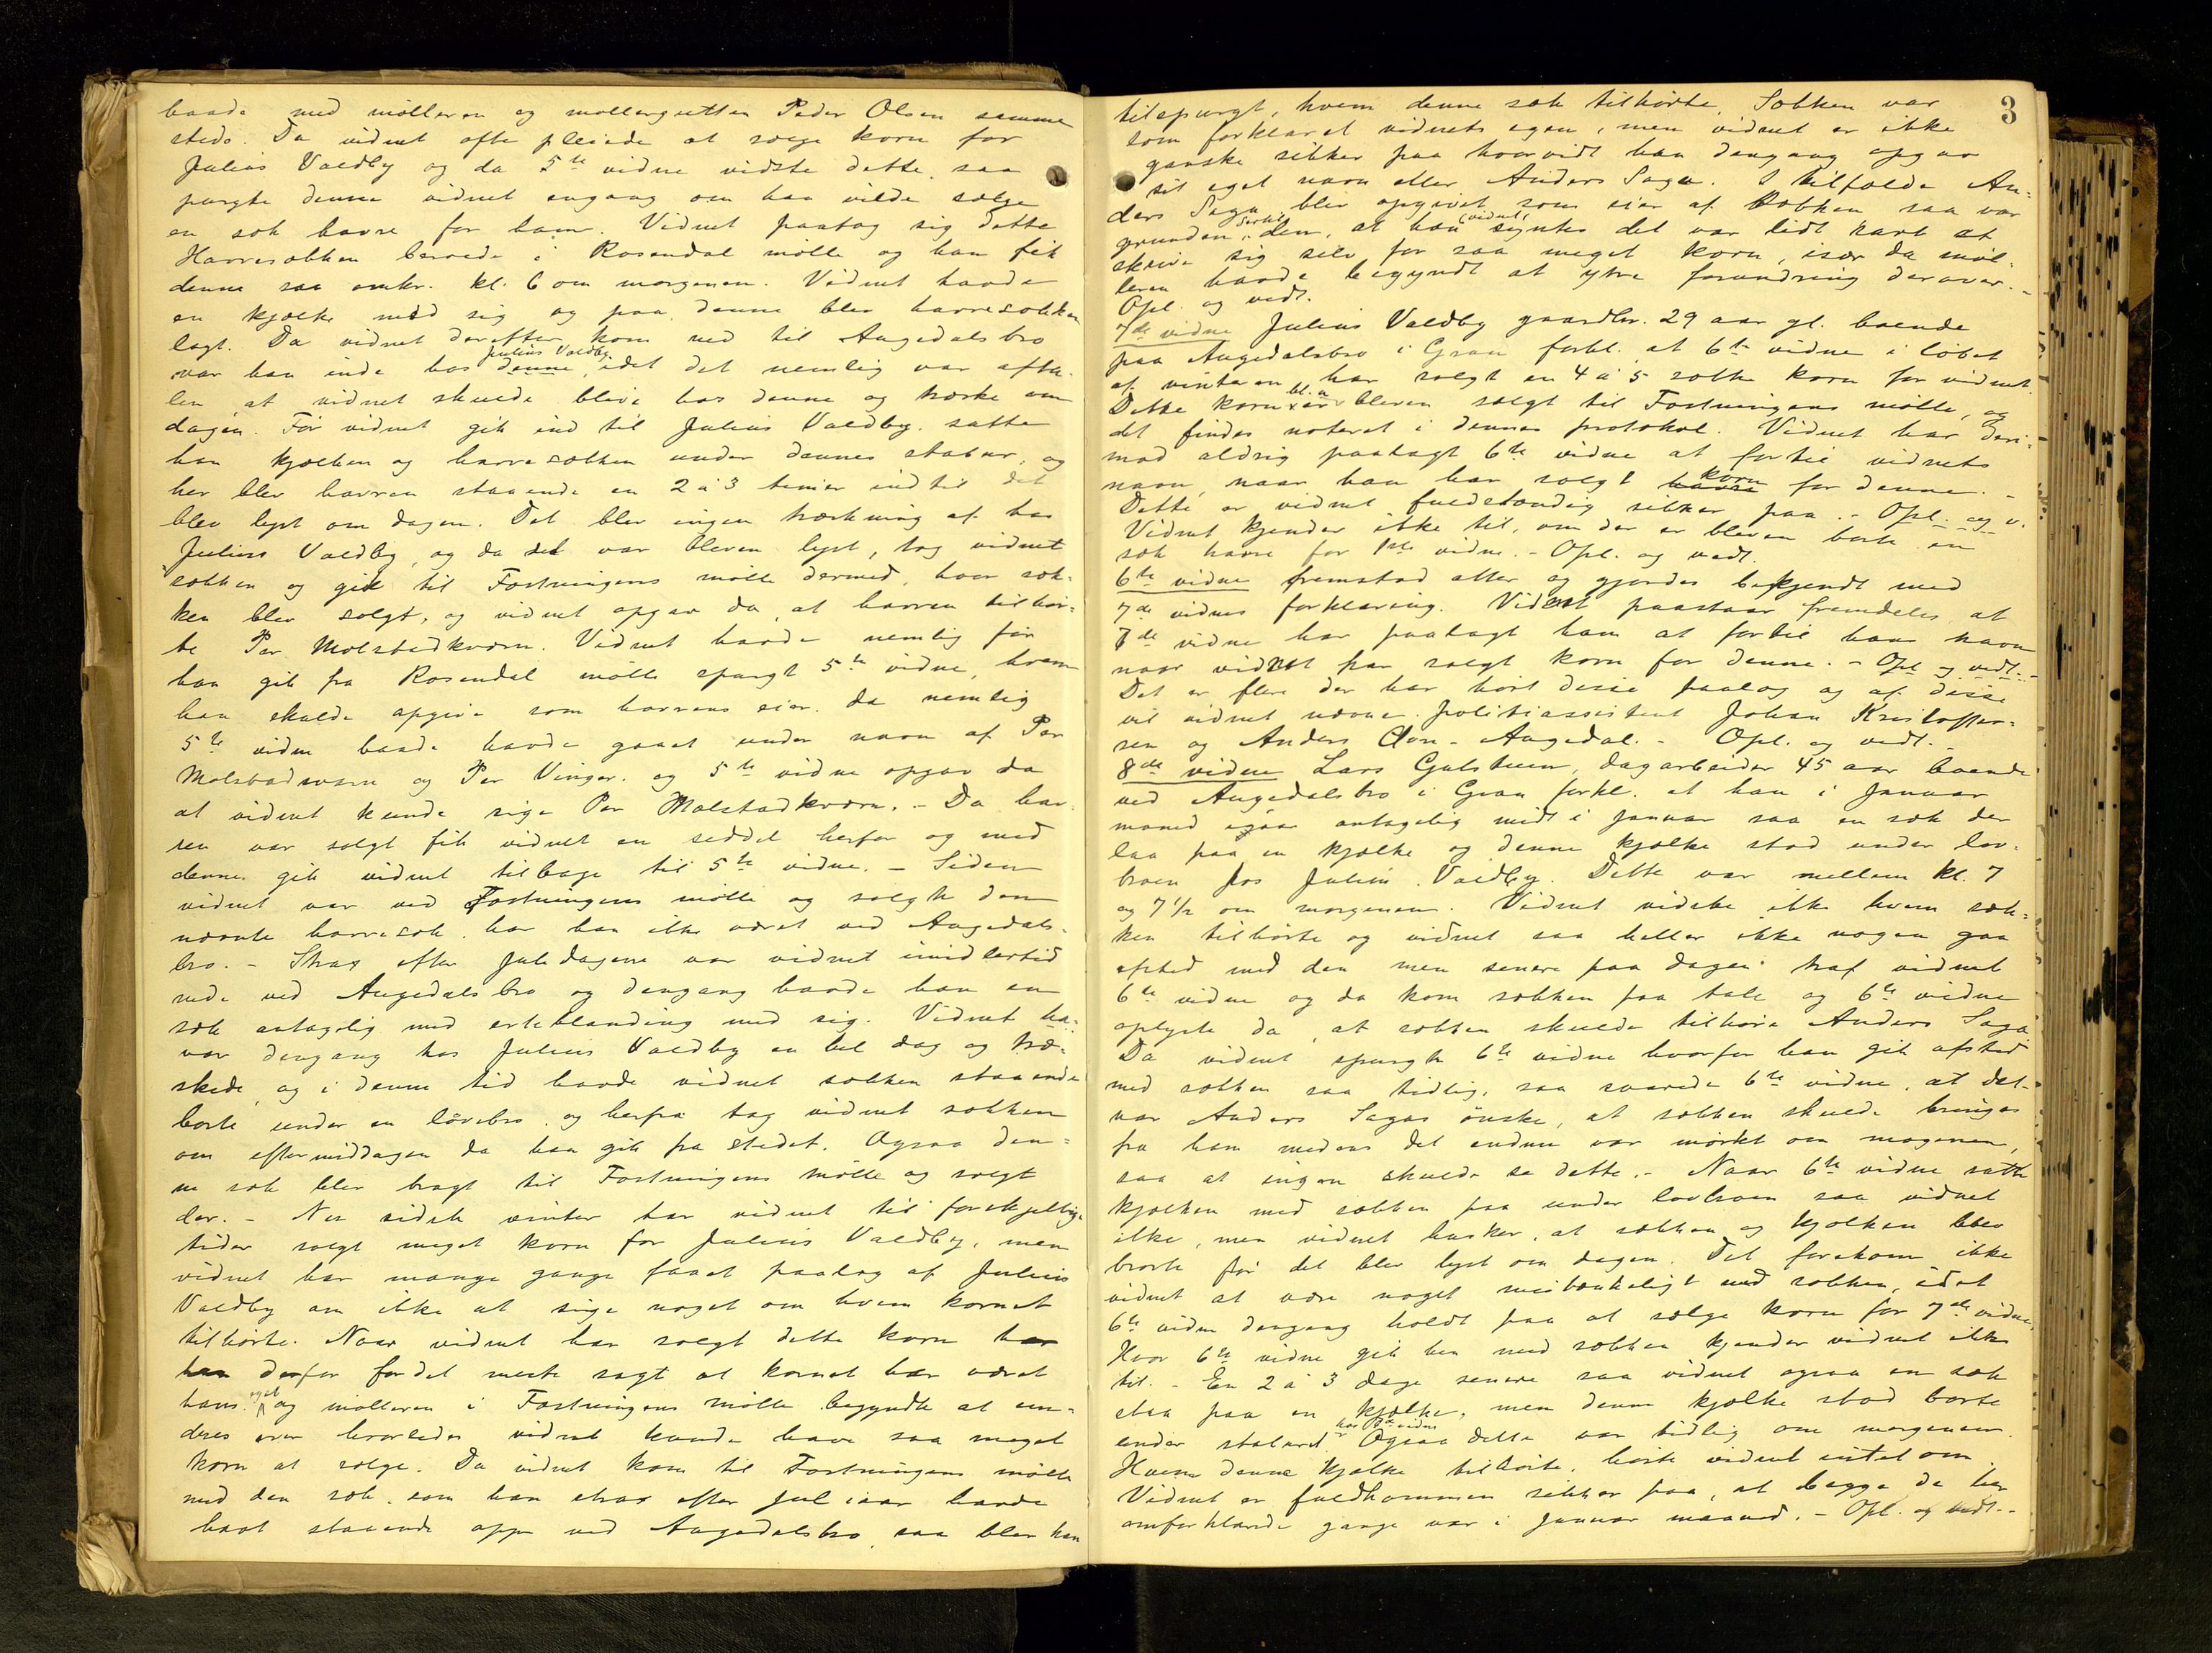 baade med mölleren og möllergutten Peder Olsen samme
steds. Da vidnet ofte pleiede at sælge korn for
Julius Valdby og da 5te vidne vidste dette, saa
spurgte denne vidnet engang om han vilde sælge
en sæk havre for ham. Vidnet paatog sig dette
Havresækken beroede i Rosendal mölle og han fik
denne saa omkr. kl. 6 om morgenen. Vidnet havde
en kjælke med sig og paa denne blev havresækken
lagt. Da vidnet derefter kom ned til Augedalsbro
var han inde hos denne Julius Valdby, idet det nemlig var afta-
len at vidnet skulde blive hos denne og træske om
dagen. Før vidnet gik ind til Julius Valdby, satte
han kjælken og havresækken under dennes stabur, og
her blev havren staaende en 2 à 3 timer indtil det
blev lyst om dagen. Det blev ingen træskning af hos
Julius Valdby, og da det var bleven lyst, tog vidnet
sækken og gik til Fostningens mölle dermed, hvor sæk-
ken blev solgt, og vidnet opgav da, at havren tilhör-
te Per Molstadkværn. Vidnet havde nemlig før
han gik fra Rosendal mölle spurgt 5te vidne, hvem
han skulde opgive som havrens eier, da nemlig
5te vidne baade havde gaaet under navn af Per
Molstadkværn og Per Vinger, og 5te vidne opgav da
at vidnet kunde sige Per Molstadkværn. – Da hav-
ren var solgt fik vidnet en seddel herfor og med
denne gik vidnet tilbage til 5te vidne. – Siden
vidnet var ved Fostningens mölle og solgte den
nævnte havresæk, har han ikke været ved Augedals-
bro. – Strax efter juledagene var vidnet imidlertid
nede ved Augedalsbro og dengang havde han en
sæk antagelig med erteblanding med sig. Vidnet
var dengang hos Julius Valdby en hel dag og træ-
skede, og i denne tid havde vidnet sækken staaende
borte under en lövebro, og herfra tog vidnet sækken
om eftermiddagen da han gik fra stedet. Ogsaa den-
ne sæk blev bragt til Fostningens mölle og solgt
der. – Nu sidste vinter har vidnet til forskjellige
tider solgt meget korn for Julius Valdby, men
vidnet har mange gange faaet paalæg af Julius
Valdby om ikke at sige noget om hvem kornet
tilhörte. Naar vidnet har solgt dette korn har
han derfor for det meste sagt at kornet har været
hans eget og mölleren i Fostningens mölle begyndte at un-
dres over hvorledes vidnet kunde have saa meget
korn at sælge. Da vidnet kom til Fostningens mölle
med den sæk, som han strax efter jul iaar havde
havt staaende oppe ved Augedalsbro, saa blev han
3
tilspurgt, hvem denne sæk tilhörte. Sækken var
som forklaret vidnets egen, men vidnet er ikke
ganske sikker paa hvorvidt han dengang opgav
sit eget navn eller Anders Saga. I tilfælde An-
ders Saga blev opgivet som eier af sækken saa var
grunden dertil den, at han (vidnet) syntes det var lidt rart at
skrive sig selv for saa meget korn, især da möl-
leren havde begyndt at ytre forundring derover. –
Opl. og vedt.
7de vidne Julius Valdby gaardbr. 29 aar gl. boende
paa Augedalsbro i Gran forkl. at 6te vidne i löbet
af vinteren har solgt en 4 à 5 sække korn for vidnet.
Dette korn er bl. a. bleven solgt til Fostningens mölle, og
det findes noteret i dennes protokol. Vidnet har deri-
mod aldrig paalagt 6te vidne at fortie vidnets
navn, naar han har solgt havre korn for denne. –
Dette er vidnet fuldstændig sikker paa. – Opl. og v.
Vidnet kjender ikke til, om der er bleven borte en
sæk havre for 1ste vidne. – Opl. og vedt.
6te vidne fremstod atter og gjordes bekjendt med
7de vidnes forklaring. Vidnet paastaar fremdeles, at
7de vidne har paalagt ham at fortie hans navn
naar vidnet har solgt korn for denne. – Opl. og vedt. –
Det er flere der har hört disse paalæg og af disse
vil vidnet nævne politiassistent Johan Kristoffer-
sen og Anders Clon-Augedal. – Opl. og vedt. –
8de vidne Lars Gulsteen, dagarbeider 45 aar boende
ved Augedalsbro i Gran forkl. at han i januar
maaned iaar antagelig midt i januar saa en sæk der
laa paa en kjælke og denne kjælke stod under löv-
broen hos Julius Valdby. Dette var mellem kl. 7
og 7 1/2 om morgenen. Vidnet vidste ikke hvem sæk-
ken tilhörte og vidnet saa heller ikke nogen gaa
afsted med den men senere paa dagen traf vidnet
6te vidne og da kom sækken paa tale og 6te vidne
oplyste da, at sækken skulde tilhöre Anders Saga
Da vidnet spurgte 6te vidne hvorfor han gik afsted
med sækken saa tidlig, saa svarede 6te vidne, at det
var Anders Sagas önske, at sækken skulde bringes
fra ham medens det endnu var mörkt om mogenen,
saa at ingen skulde se dette. – Naar 6te vidne satte
kjælken med sækken paa under lövbroen saa vidnet
ikke, men vidnet husker, at sækken og kjælken blev
borte før det blev lyst om dagen. Det forekom ikke
vidnet at være noget mistænkeligt med sækken, idet
6te vidne dengang holdt paa at sælge korn for 7de vidne.
Hvor 6te vidne gik hen med sækken kjender vidnet ikke
til. – En 2 à 3 dage senere saa vidnet ogsaa en sæk
staa paa en kjælke, men denne kjælke stod borte
under staburet hos 7de vidne. Ogsaa dette var tidlig om morgenen.
Hvem denne kjælke tilhörte, hörte vidnet intet om.
Vidnet er fuldkommen sikker paa, at begge de her
omforklarede gange var i januar maaned. – Opl. og vedt. –